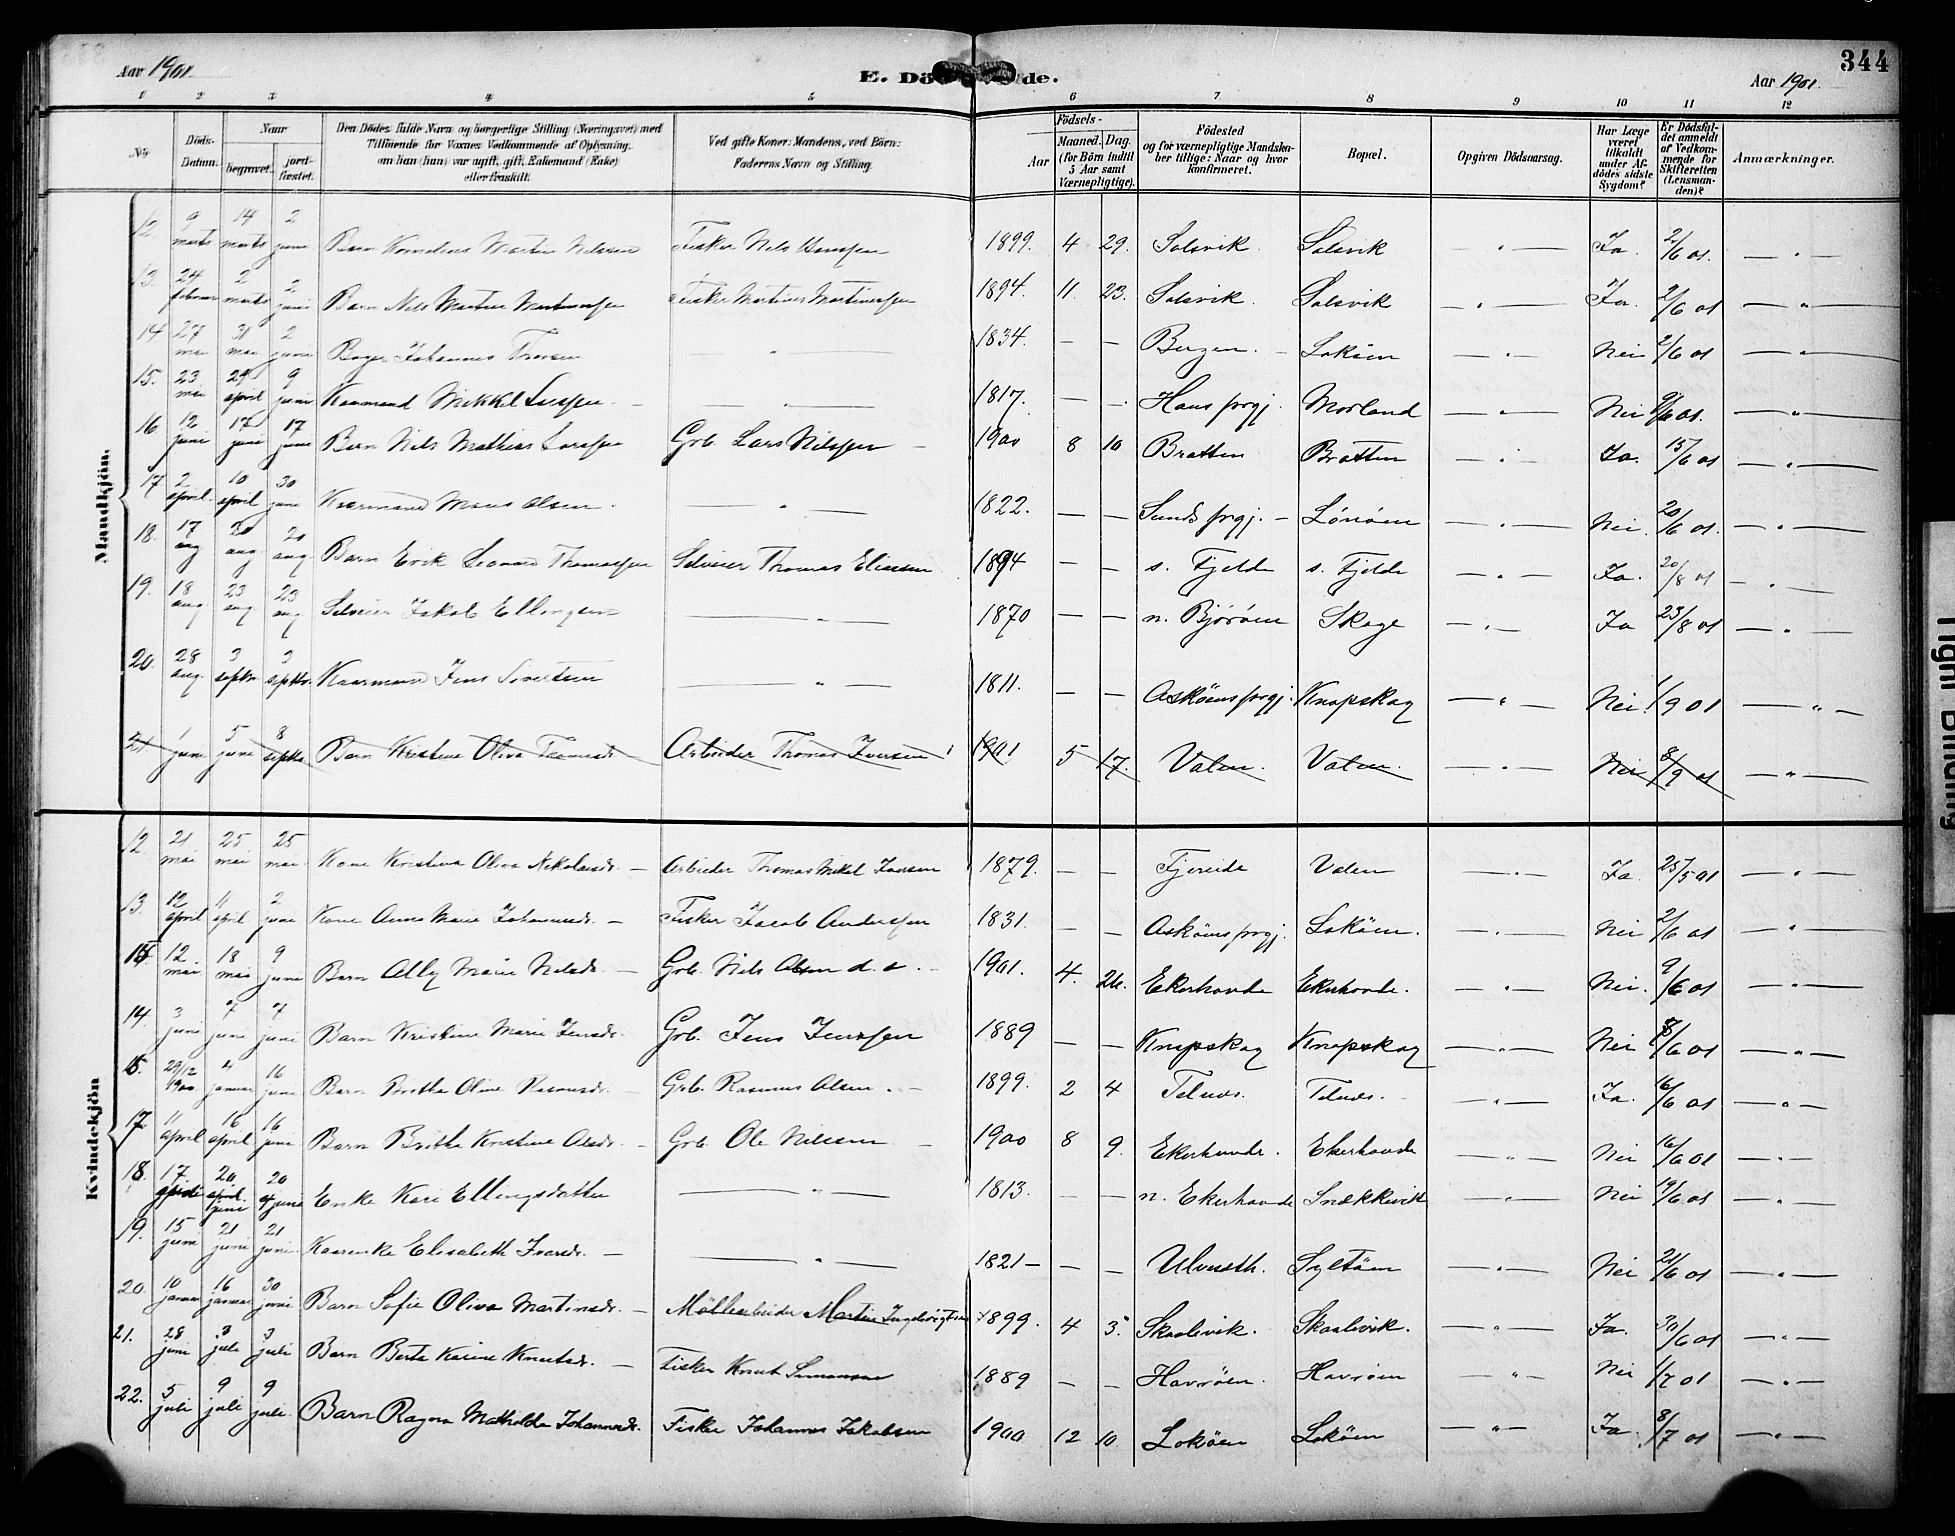 Aar 1901.
E. Dö de.
Aar 1901.
344
1 2 3 4 5 6 7 8 9 10 11 12
No
Döds-Datum.
Naar begravet. jordfæstet.
Den Dödes fulde Navn og borgerlige Stilling (Næringsvei) med Tilföiende för Voxnes Vedkommende af Oplysning, om han (hun) var ugift, gift, Enkemand (Enke) eller fraskilt.
Ved gifte Koner: Mandens, ved Börn: Faderens Navn og Stilling.
Födsels-
Aar Maaned. Dag. (for Börn indtil 5 Aar samt Værnepligtige).
Födested og for værnepligtige Mandskaber tillige: Naar og hvor konfirmeret.
Bopæl.
Opgiven Dödsaarsag.
Har Læge været tilkaldt under Afdödes sidste Sygdom?
Er Dödsfaldet anmeldt af Vedkommende for Skifteretten (Lensmanden)?
Anmærkninger.
Mandkjön.
12. 9 marts 14 marts 2 juni Barn Kornelius Martin Nilssen Fisker Nils Hanssen 1899. 4 29. Solsvik. Solsvik — " — Ja. 2/6 01. — " —
13. 24 februar 2 marts 2 juni Barn Nils Martin Martinussen Fisker Martinus Martinussen 1894. 11. 23. Solsvik. Solsvik — " — Ja. 2/6 01 — " —
14 27 mai 31 mai 2 juni Johannes — " — 1834. — — Bergen. — Loköen — " — Nei 2/6 01 — " —
15. 23 mai 29 april 9 juni Kaarmand Mikkel — " — 1817. — — Haus prgj. Morland — " — Nei 9/6 01. — " —
16. 12 juni 17 juni 17 juni Barn Nils Mathias Larssen Grb. Lars Nilssen — 1900 8 10 Bratten Bratten — " — Ja. 15/6 01 — " —
17 2 april. 10 april 30 juni Kaarmand Mons Olsen. — " — 1822. — — Sunds prgj. — Lönöen — " — Nei. 20/6 01. — " —
18. 17 aug 20 aug 20 aug. Barn Erik Leonard Thomassen Selveier Thomas Eliassen. 1894 — — s. Fjelde s. Fjelde — " — Ja. 20/8 01 — " —
19. 18 aug. 23 aug 23 aug Selveier Jakob Ellingsen — " — 1870 — — n. Björöen Skage — " — Ja 23/8 01 — " —
20. 28 aug. 3 septbr. 3 septbr. Kaarmand Jens Sivertsen — " — 1811. — — Asköens prgj. Knapskog — " — Nei. 1/9 01 — " —
21 1 juni 5 juni 8 septbr. Barn Kristine Oliva Thomasdr Arbeider Thomas Iversen 1901 5 17. Valen. Valen. — " — Nei 8/9 01 — " —
Kvindekjön
12. 21 mai 25 mai 25 mai Kone Kristina Oliva Nikolaisdr. — Arbeider Thomas Mikal Iversen 1879. — — Fjereide Valen — " — Ja. 25/5 01 — " —
13. 12 april 11 april 2 juni Kone Anna Marie Johannesdr. — Fisker Jacob Anderssen 1831. — — Asköens prgj. Loköen. — " — Nei 2/6 01 — " —
12 mai 18 mai 9 juni Barn Ally Marie Nilsdr. — Grb. Nils Olsen d. e. — 1901. 4. 26. Ekerhovde Ekerhovde. — " — Nei. 9/6 01 — " —
14. 3 juni 7 juni 7 juni Barn Kristine Marie Jensdr. Grb. Jens Jenssen 1889 — — Knapskog Knapskog — " — Nei 8/6 01 — " —
29/12 1900 4 januar 16 juni Barn Britha Oline Rasmusdr. — Grb. Rasmus Olsen. — 1899. 2 4 Telnæs. Telnæs. — " — Ja. 16/6 01 — " —
17. 11 april 16 april 16 juni Barn Britha Kristine Olsdr. — Grb Ole Nilssen — 1900 8 9. Ekerhovde. Ekerhovde — " — Nei 16/6 01 — " —
18. 17 april 20 april 20 juni Enke Kari Ellingsdatter — " — 1813. — — n. Ekerhovde Snekkevik — " — Nei 19/6 01 — " —
19. 15 juni 21 juni 21 juni. Kaarenke Elisabeth Ivarsdr. — — " — 1821 — — — Ulveseth. Syltöen — " — Nei 21/6 01 — " —
20. 10 januar 16 januar 30 juni Barn Sofie Oliva Martinsdr. — Möllearbeider Martin Ingebrigtsen 1899. 4 5. Skaalevik. Skaalevik. — " — Ja. 30/6 01 — " —
21. 28 juni 3 juli 3 juli Barn Berta Karine Knutsdr. — Fisker Knut Simonsen 1889 — — Havröen. Havröen — " — Nei 1/7 01 — " —
22. 5 juli 9 juli 9 juli. Barn Ragna Mathilda Johannesdr. Fisker Johannes Jakobsen 1900 12 10 Loköen Loköen — " — Ja. 8/7 01 — " —
Tight Binding